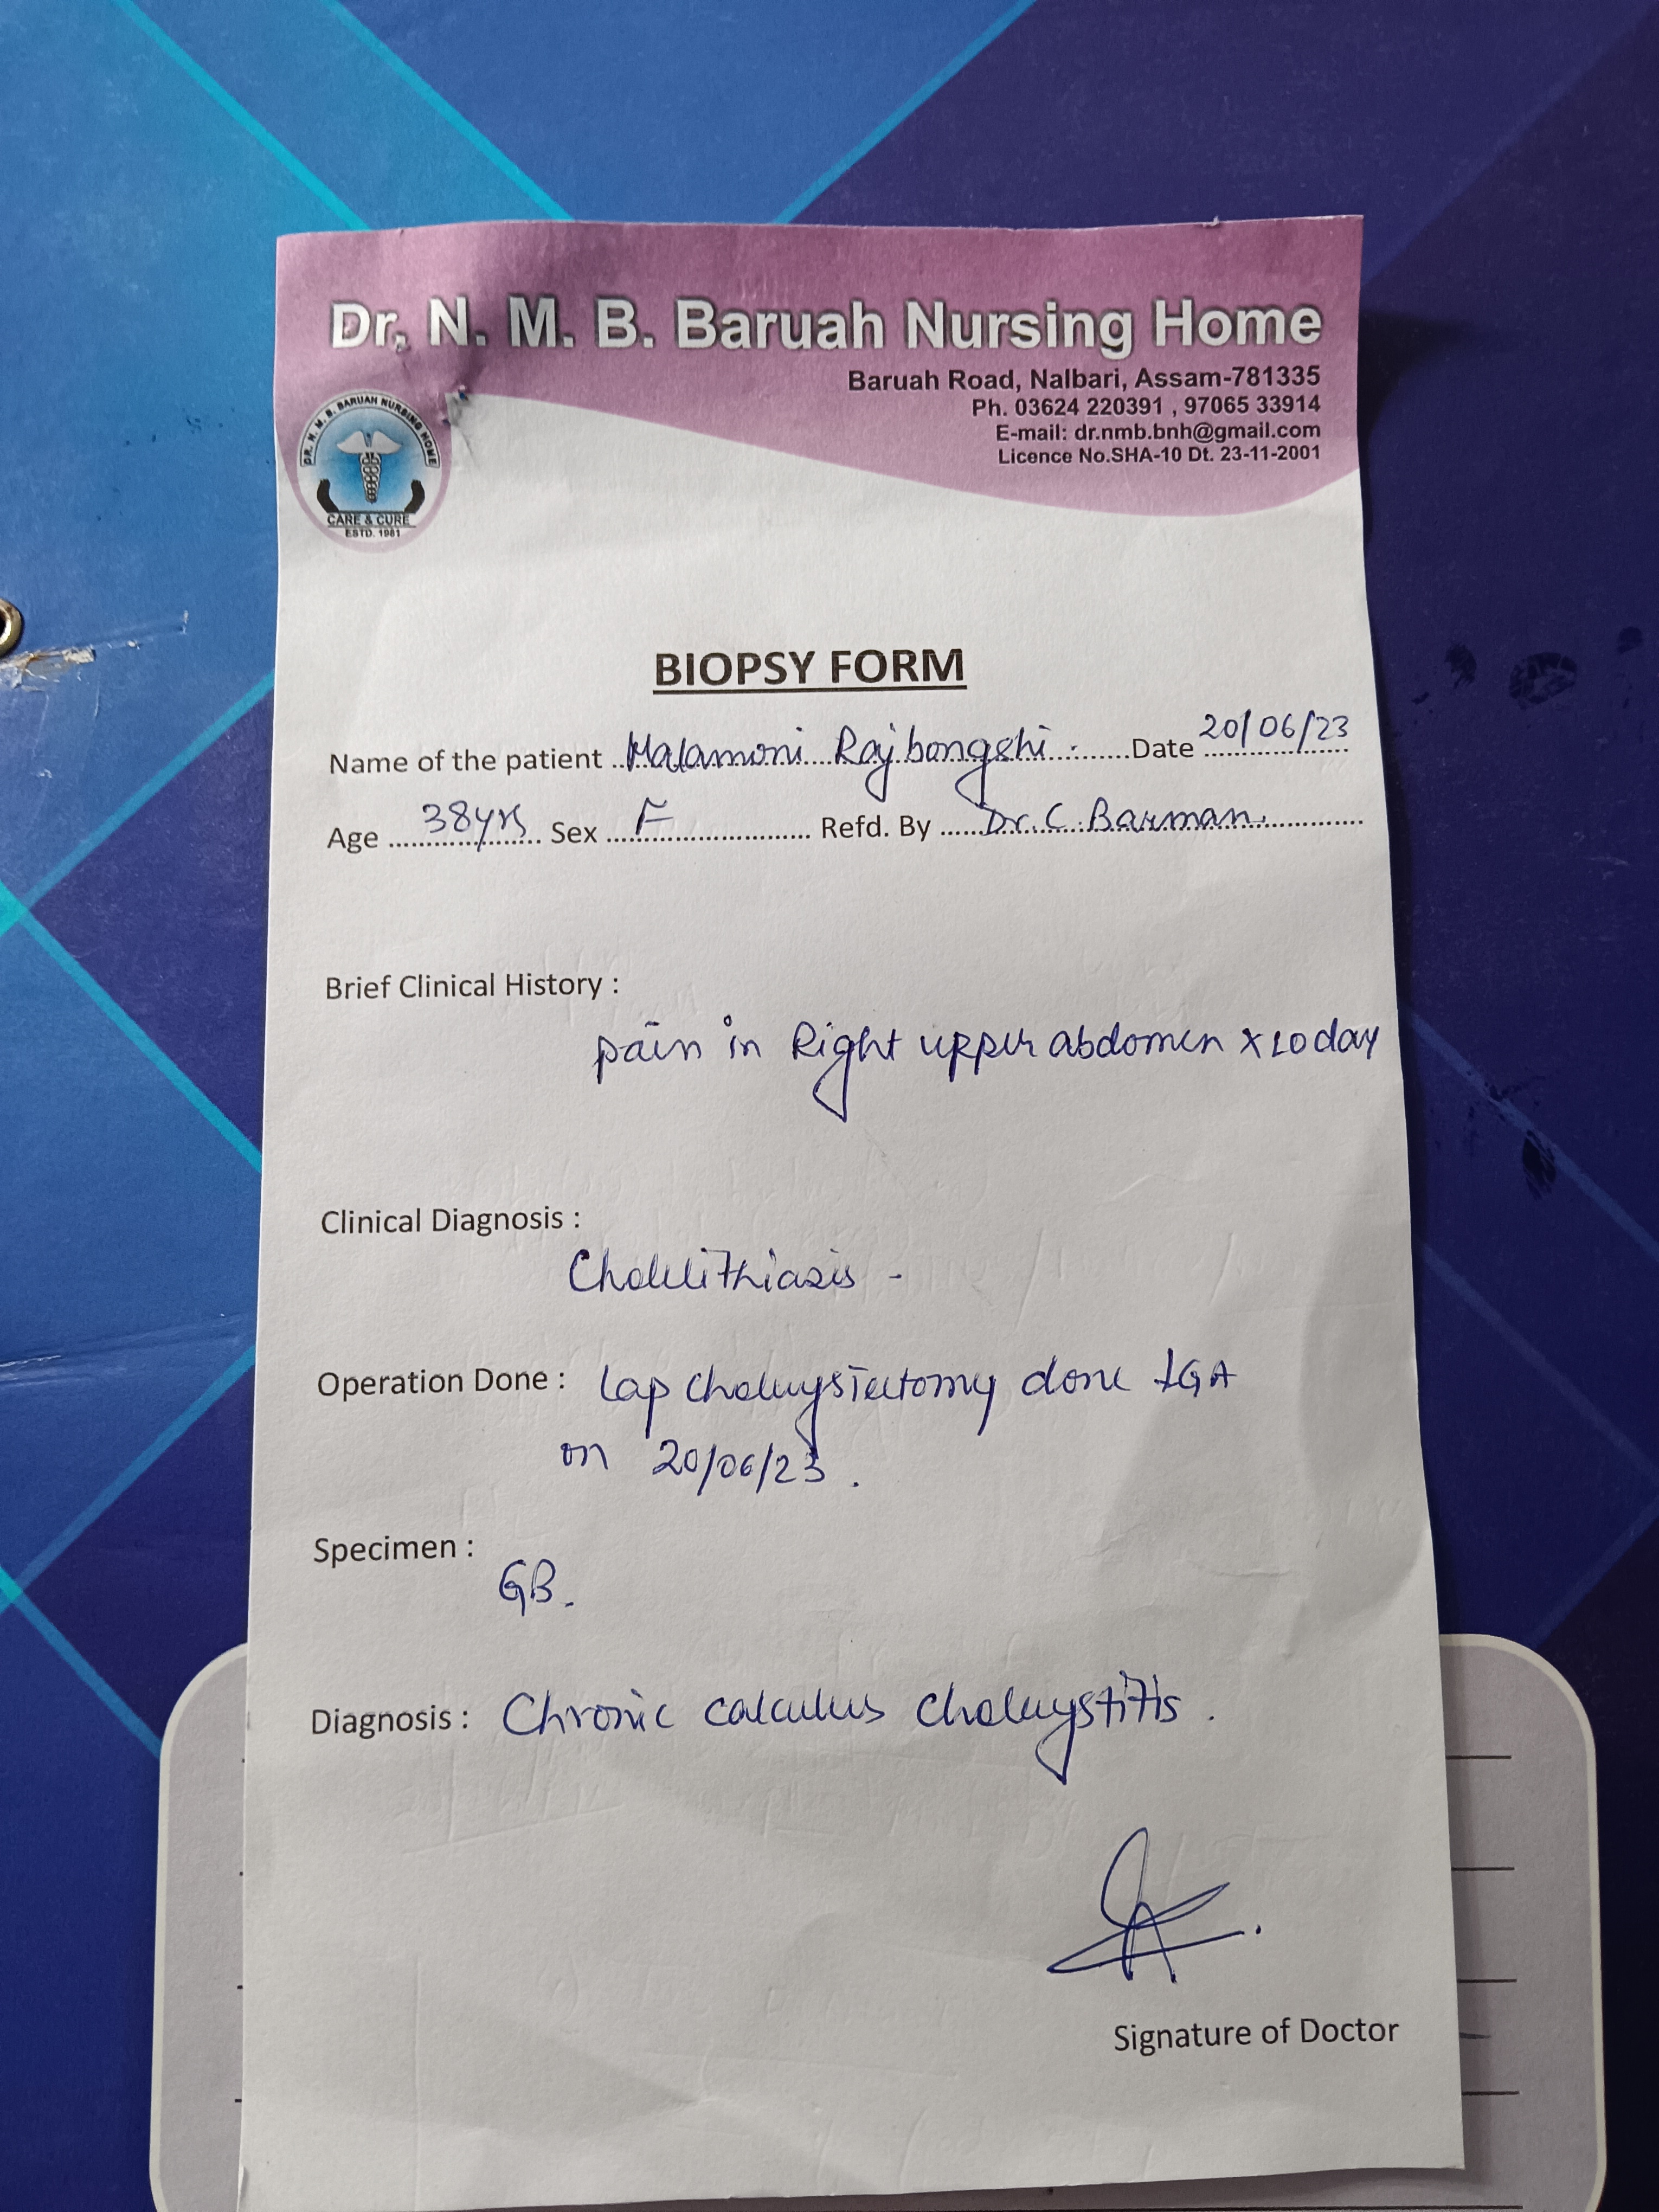 Dr. N. M. B. Baruah Nursing Home
Baruah Road, Nalbari, Assam-781335
Ph. 03624 220391 , 97065 33914
E-mail: dr.nmb.bnh@gmail.com
Licence No.SHA-10 Dt. 23-11-2001
DR. N. M. B. BARUAH NURSING HOME
CARE & CURE
ESTD. 1981
BIOPSY FORM
Name of the patient Malamoni Rajbongshi. Date 20/06/23
Age 38yrs Sex F Refd. By Dr. C. Barman.
Brief Clinical History :
pain in Right upper abdomen x 10 day
Clinical Diagnosis :
Cholelithiasis -
Operation Done : Lap cholecystectomy done ↓GA
on 20/06/23.
Specimen :
GB.
Diagnosis : Chronic calculus cholecystitis.
Signature of Doctor